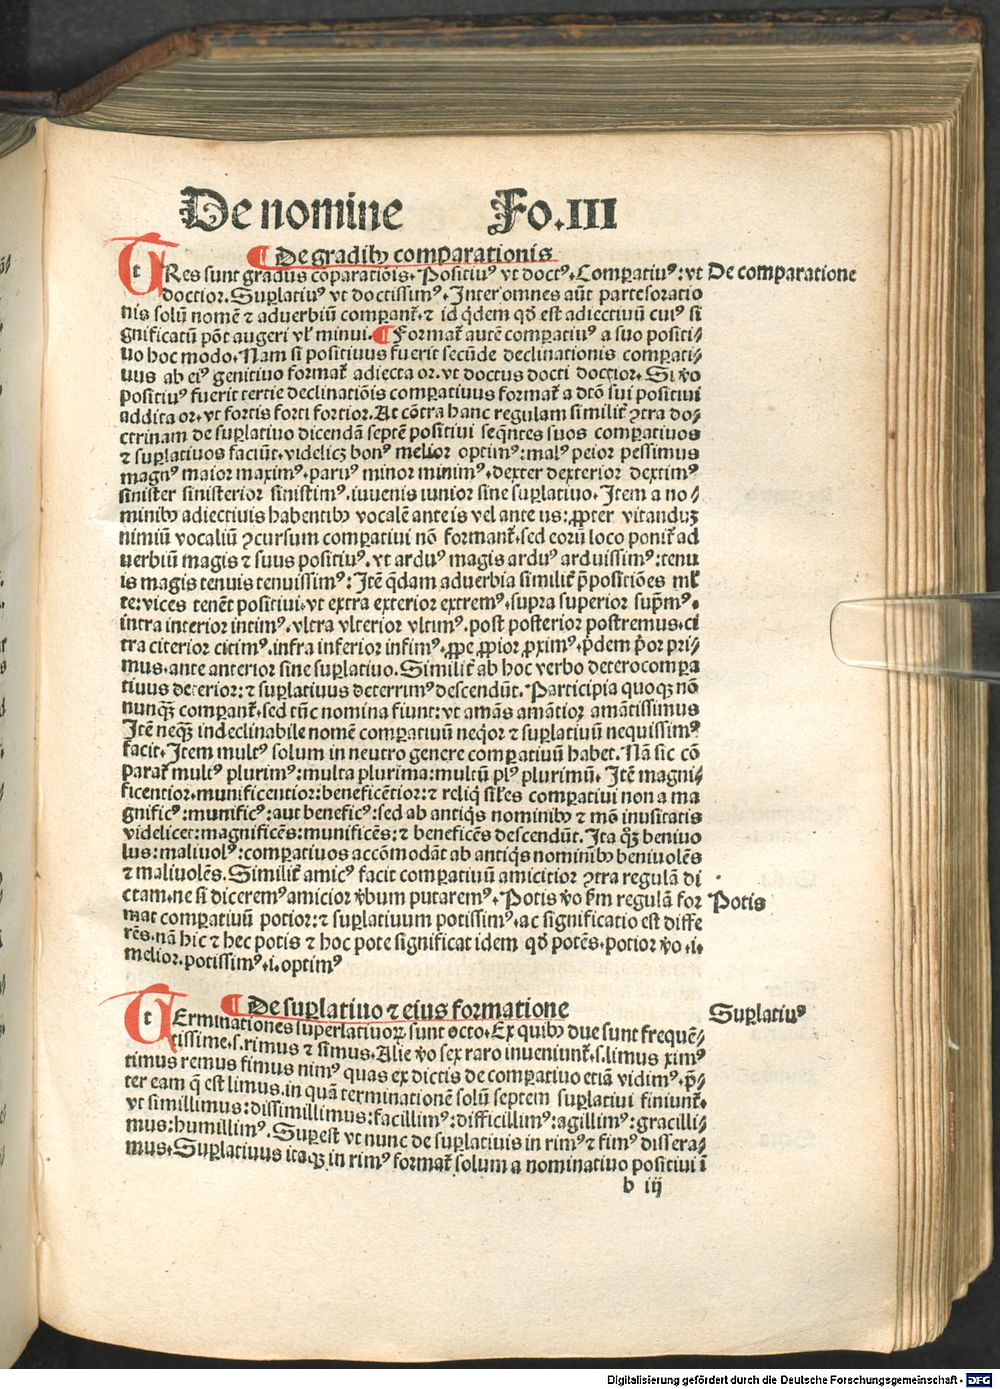 De nomine Fo.III
¶ De gradibꝫ comparationis
TRes sunt gradus cōparatiōis. Positiuꝰ vt doctꝰ. Comꝑatiuꝰ: vt De comparatione
doctior. Suꝑlatiuꝰ vt doctissimꝰ. Inter omnes aūt partes oratio
nis solū nomē ⁊ aduerbiū comparant᷑. ⁊ id q̇dem qđ est adiectiuū cuiꝰ si
gnificatū pōt augeri vl᷑ minui. ¶ Format᷑ autē comꝑatiuꝰ a suo positi⸗
uo hoc modo. Nam si positiuus fuerit secūde declinationis comꝑati⸗
uus ab eiꝰ genitiuo format᷑ adiecta or. vt doctus docti doctior. Si v̓o
positiuꝰ fuerit tertie declinatiōis comꝑatiuus format᷑ a dtō sui positiui
addita or. vt fortis forti fortior. At cōtra hanc regulam similit᷑ ꝯtra do⸗
ctrinam de suꝑlatiuo dicendā septē positiui seq̄ntes suos comꝑatiuos
⁊ suꝑlatiuos faciūt. videlicꝫ bonꝰ melior optimꝰ: malꝰ peior pessimus
magnꝰ maior maximꝰ. paruꝰ minor minimꝰ. dexter dexterior dextimꝰ
sinister sinisterior sinistimꝰ. iuuenis iunior sine suꝑlatiuo. Item a no⸗
minibꝫ adiectiuis habentibꝫ vocalē ante is vel ante us: ꝓpter vitanduꝫ
nimiū vocaliū ꝯcursum comꝑatiui nō formant᷑. sed eorū loco ponit᷑ ad
uerbiū magis ⁊ suus positiuꝰ. vt arduꝰ magis arduꝰ arduissimꝰ: tenu
is magis tenuis tenuissimꝰ: Itē q̄dam aduerbia similit᷑ p̄positiōes ml᷑
te: vices tenēt positiui. vt extra exterior extremꝰ. supra superior sup̄mꝰ.
intra interior intimꝰ. vltra vlterior vltimꝰ. post posterior postremus. ci
tra citerior citimꝰ. infra inferior infimꝰ. ꝓpe ꝓpior ꝓximꝰ. p̓dem p̓or pri⸗
mus. ante anterior sine suꝑlatiuo. Similit᷑ ab hoc verbo detero comꝑa
tiuus deterior: ⁊ suꝑlatiuus deterrimꝰ descendūt. Participia quoqꝫ nō
nunqꝫ̄ comꝑant᷑. sed tūc nomina fiunt: vt amās amātior amātissimus
Itē neqꝫ̄ indeclinabile nomē comꝑatiuū neq̇or ⁊ suꝑlatiuū nequissimꝰ
facit. Item multꝰ solum in neutro genere comꝑatiuū habet. Nā sic cō
parat᷑ multꝰ plurimꝰ: multa plurima: multū plꝰ plurimū. Itē magni⸗
ficentior. munificentior: beneficētior: ⁊ reliq̇ sil᷑es comꝑatiui non a ma
gnificꝰ: munificꝰ: aut beneficꝰ: sed ab antiq̇s nominibꝫ ⁊ mō inusitatis
videlicet: magnificēs: munificēs: ⁊ beneficēs descendūt. Ita qꝫ̄ beniuo
lus: maliuolꝰ: comꝑatiuos accōmodāt ab antiq̇s nominibꝫ beniuolēs
⁊ maliuolēs. Similit᷑ amicꝰ facit comꝑatiuū amicitior ꝯtra regulā di
ctam. ne si diceremꝰ amicior v̓bum putaremꝰ. Potis v̓o ẜm regulā for Potis
mat comꝑatiuū potior: ⁊ suꝑlatiuum potissimꝰ. ac significatio est diffe
rēs. nā hic ⁊ hec potis ⁊ hoc pote significat idem qđ potēs. potior v̓o .i.
melior. potissimꝰ. i. optimꝰ
¶ De suꝑlatiuo ⁊ eius formatione Suꝑlatiuꝰ
TErminationes superlatiuoꝝ sunt octo. Ex quibꝫ due sunt frequē⸗
tissime. s. rimus ⁊ simus. Alie v̓o sex raro inueniunt᷑. s. limus ximꝰ
timus remus fimus nimꝰ quas ex dictis de comꝑatiuo etiā vidimꝰ. p̄⸗
ter eam q̄ est limus. in quā terminationē solū septem suꝑlatiui finiunt᷑.
vt simillimus: dissimillimus: facillimꝰ: difficillimꝰ: agillimꝰ: gracilli⸗
mus: humillimꝰ. Suꝑest vt nunc de suꝑlatiuis in rimꝰ ⁊ simꝰ dissera⸗
mus. Suꝑlatiuus itaqꝫ in rimꝰ format᷑ solum a nominatiuo positiui ī
b iij
Digitalisierung gefördert durch die Deutsche Forschungsgemeinschaft - DFG